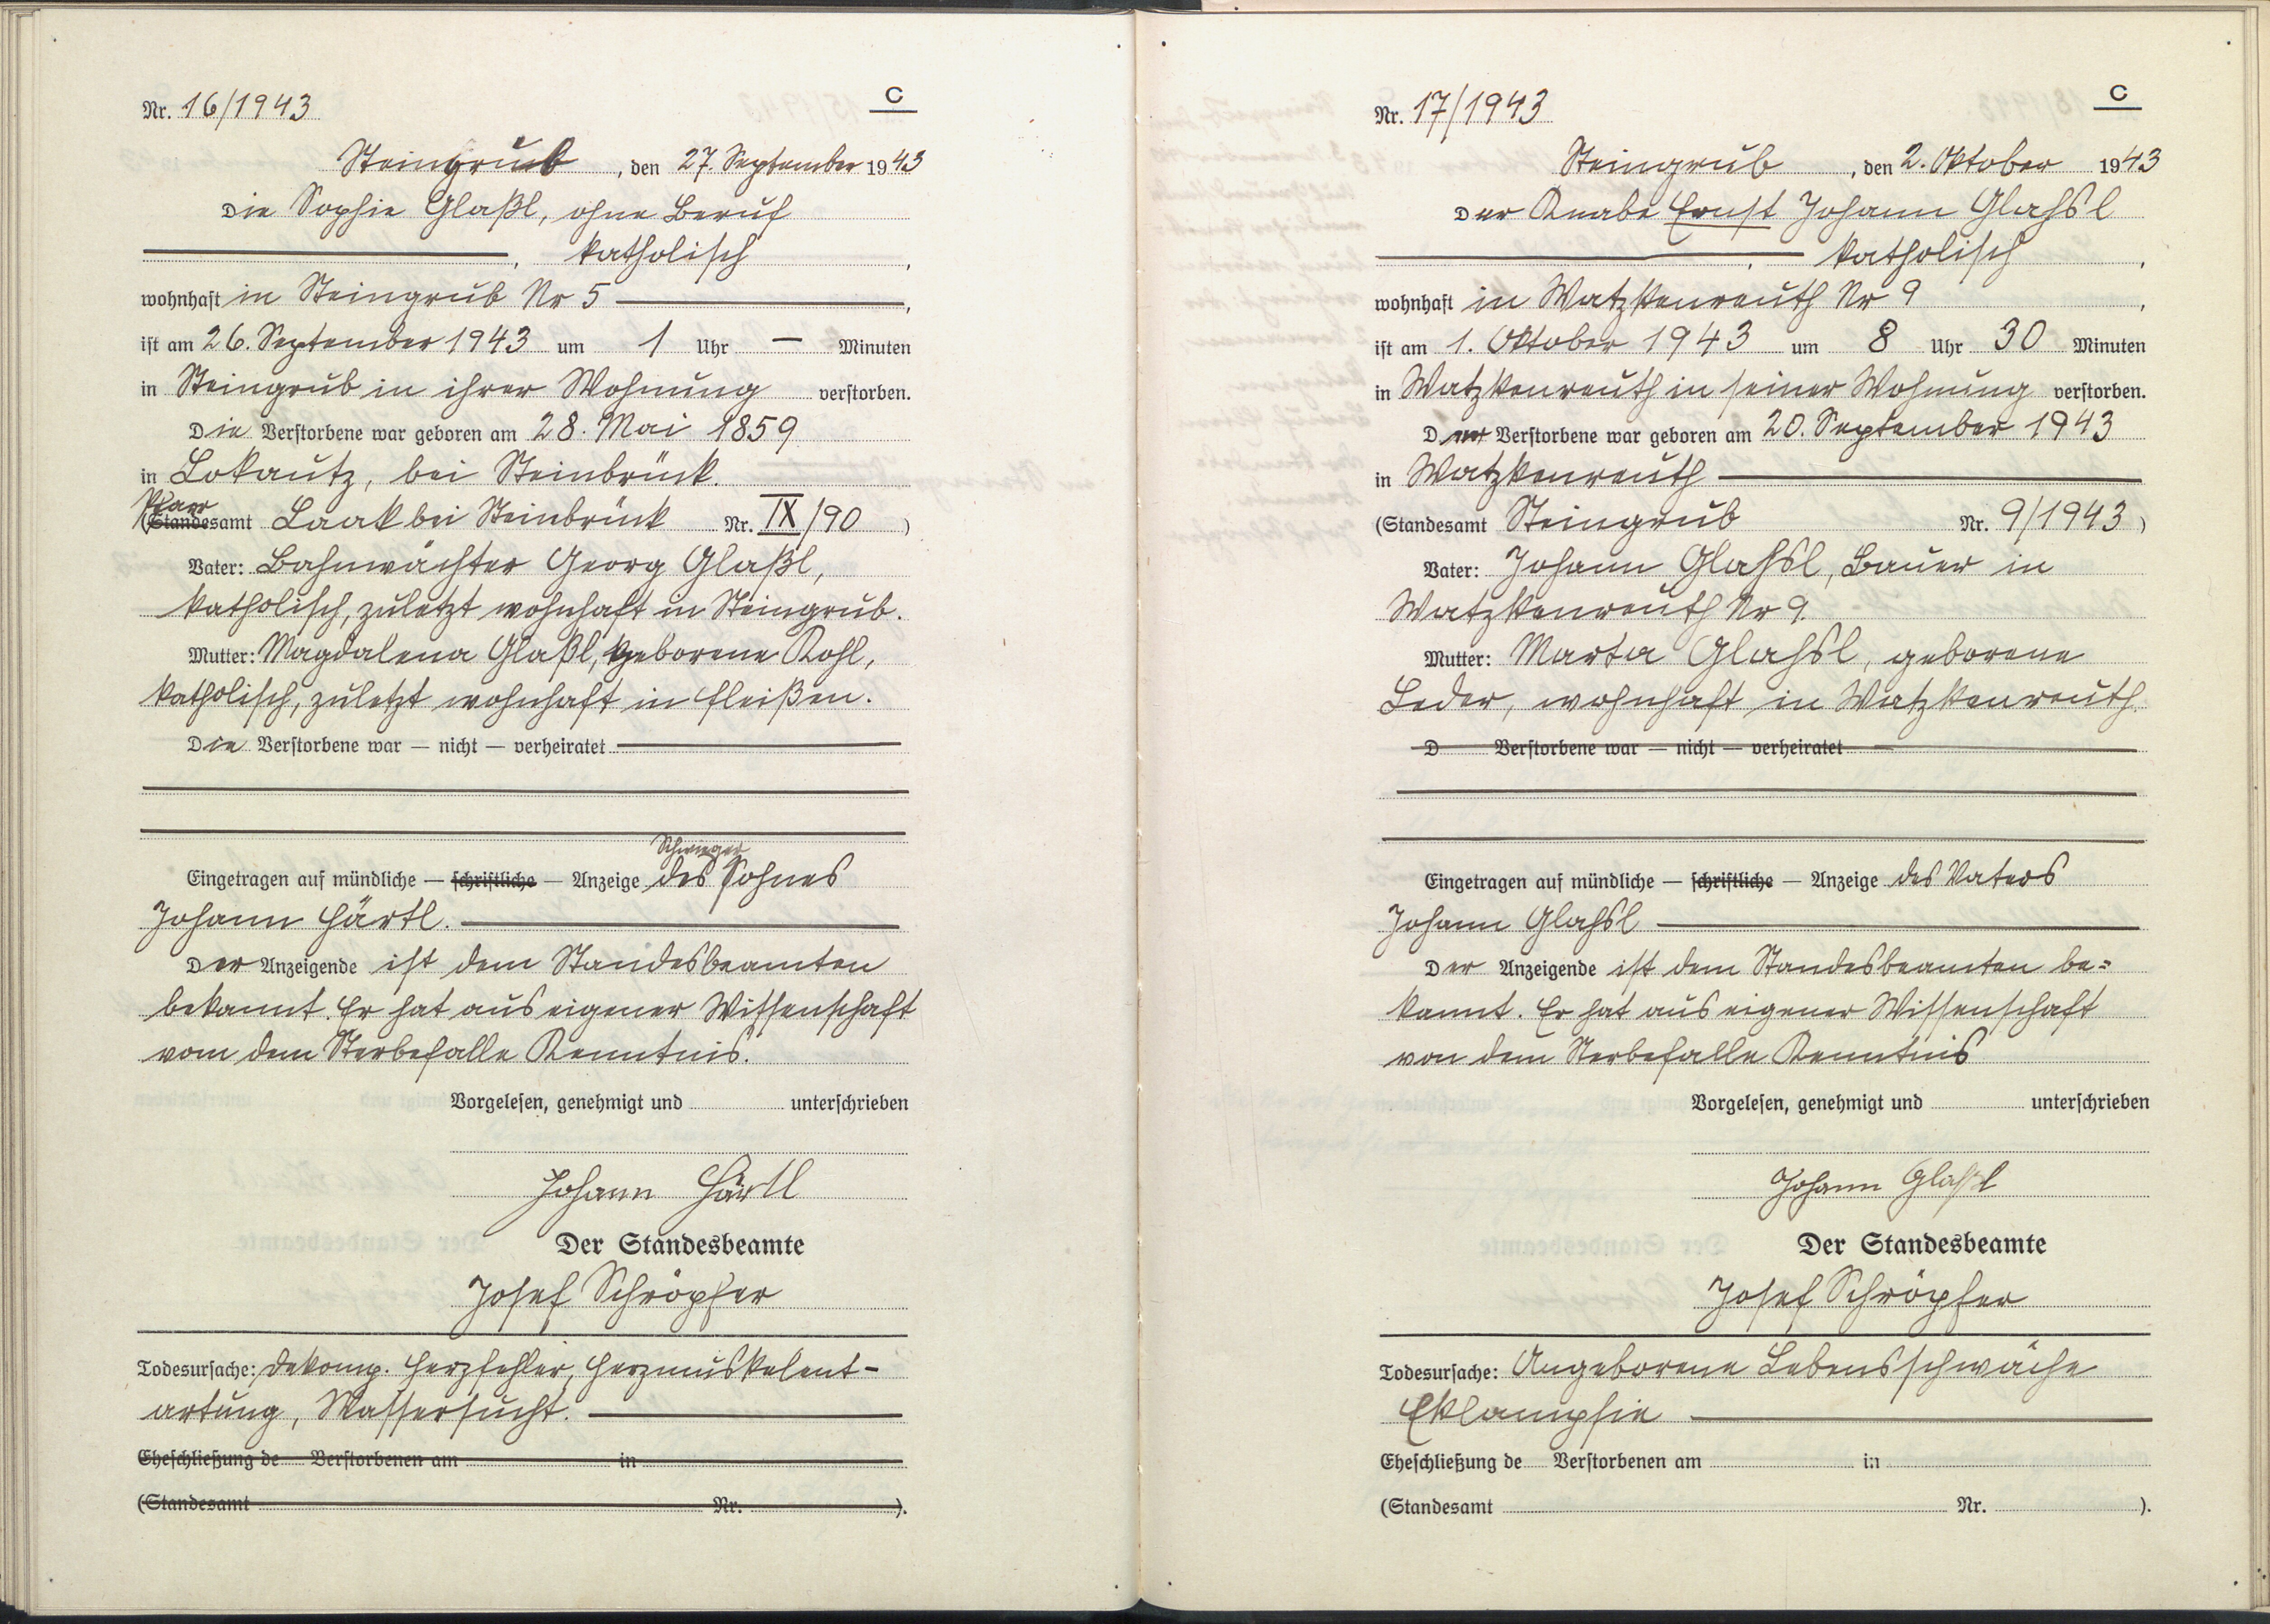 Nr. 16/1943
C
Steingrub, den 27. September 1943
Die Sophie Glaßl, ohne Beruf
, katholisch,
wohnhaft in Steingrub Nr 5,
ist am 26. September 1943 um 1 Uhr — Minuten
in Steingrub in ihrer Wohnung verstorben.
Die Verstorbene war geboren am 28. Mai 1859
in Lokautz, bei Steinbrück.
Pfarr
(Standesamt Laak bei Steinbrück Nr. IX/90)
Vater: Bahnwächter Georg Glaßl,
katholisch, zuletzt wohnhaft in Steingrub.
Mutter: Magdalena Glaßl, geborene Kohl,
katholisch, zuletzt wohnhaft in Fleißen.
Die Verstorbene war — nicht — verheiratet
Schwieger
Eingetragen auf mündliche — schriftliche — Anzeige des Sohnes
Johann Härtl.
Der Anzeigende ist dem Standesbeamten
bekannt. Er hat aus eigener Wissenschaft
vom dem Sterbefalle Kenntnis.
Vorgelesen, genehmigt und unterschrieben
Johann Härtl
Der Standesbeamte
Josef Schröpfer
Todesursache: Dekomp. Herzfehler, Herzmuskelent-
artung, Wassersucht.
Eheschließung de Verstorbenen am in
(Standesamt Nr. ).
Nr. 17/1943
C
Steingrub, den 2. Oktober 1943
Der Knabe Ernst Johann Glahsl
, katholisch,
wohnhaft in Watzkenreuth Nr 9,
ist am 1. Oktober 1943 um 8 Uhr 30 Minuten
in Watzkenreuth in seiner Wohnung verstorben.
Der Verstorbene war geboren am 20. September 1943
in Watzkenreuth
(Standesamt Steingrub Nr. 9/1943)
Vater: Johann Glahsl, Bauer in
Watzkenreuth Nr 9.
Mutter: Marta Glahsl, geborene
Leder, wohnhaft in Watzkenreuth.
D Verstorbene war — nicht — verheiratet
Eingetragen auf mündliche — schriftliche — Anzeige des Vaters
Johann Glahsl
Der Anzeigende ist dem Standesbeamten be=
kannt. Er hat aus eigener Wissenschaft
von dem Sterbefalle Kenntnis
Vorgelesen, genehmigt und unterschrieben
Johann Glahsl
Der Standesbeamte
Josef Schröpfer
Todesursache: Angeborene Lebensschwäche
Eklampsie
Eheschließung de Verstorbenen am in
(Standesamt Nr. ).